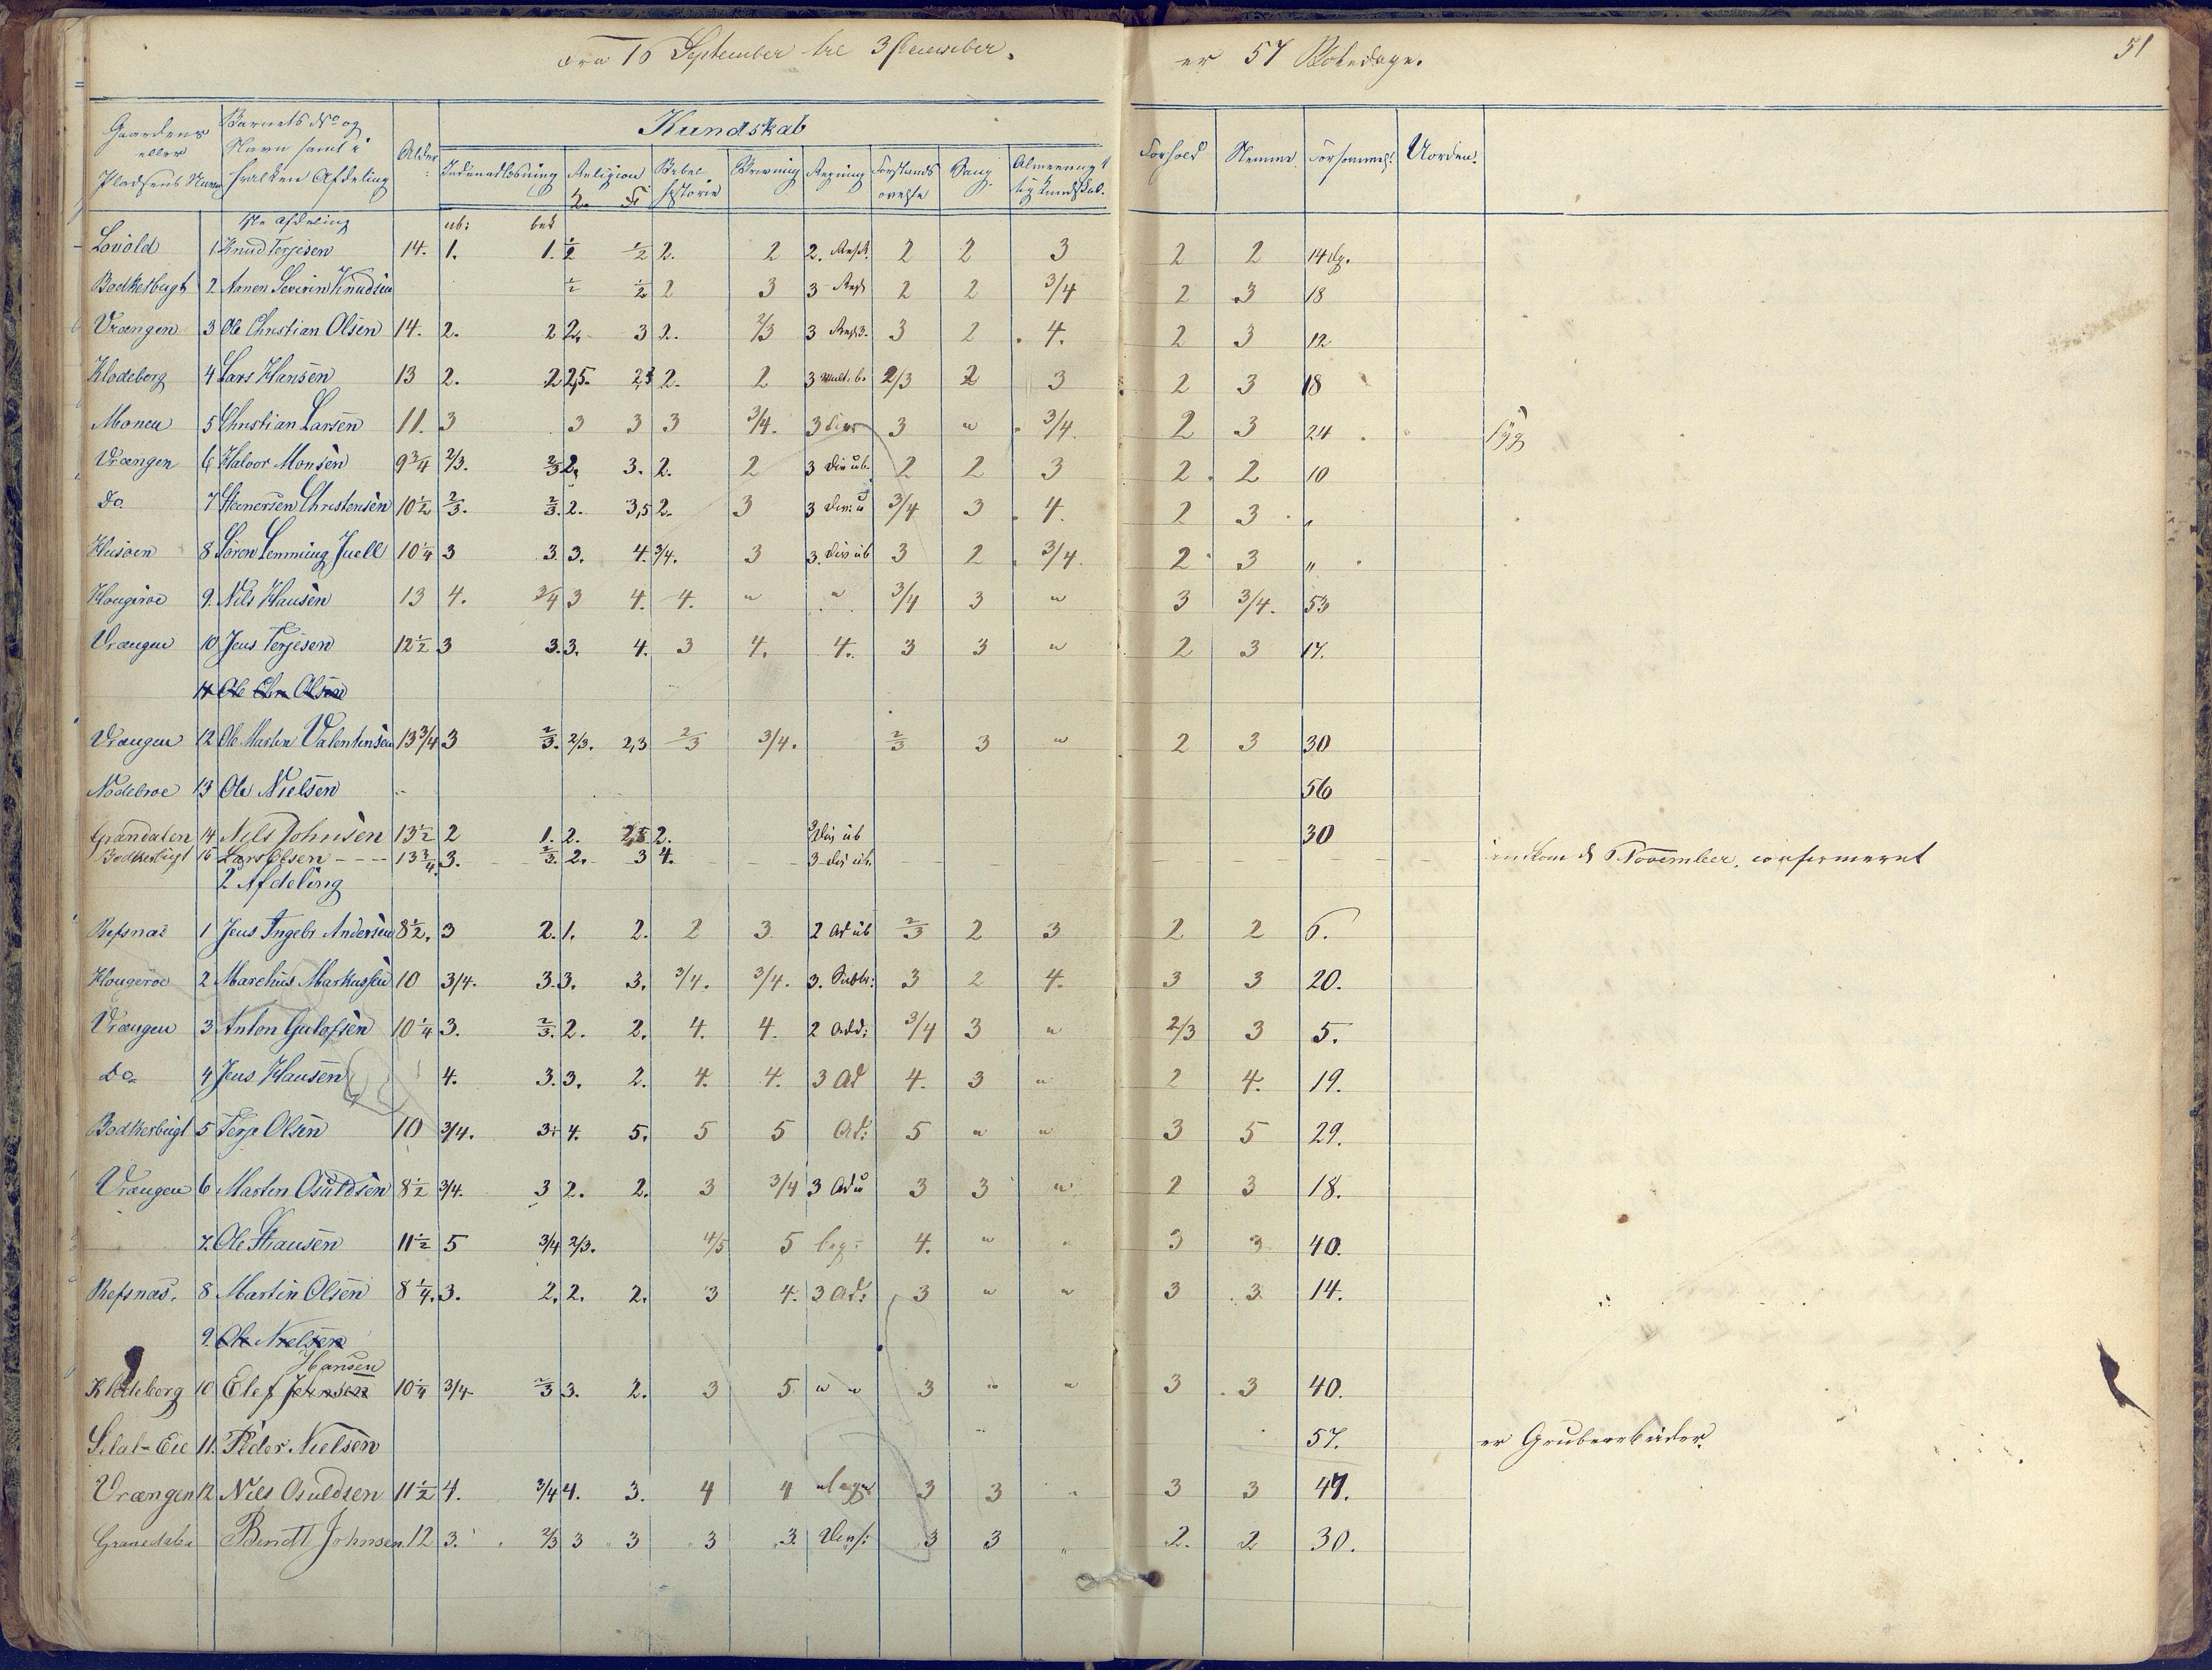 16 September til 3 December.
er 57 Skoledage. 51
Gaardens eller Pladsens Navn Barnets No og Navn samt i hvilken Afdeling Alder Kundskab Forhold Nemme Forsømmels Uorden.
Indenadlæsning Religion Bibel historie Skrivning Regning Forstands øvelse Sang Almeennyttig Kundskab.
1te Afdeling ub: bek
Lovold 1 Knud Terjesen 14. 1. 1. 1/2 1/2 2. 2 2. 2 2 3 2 2 14 dg.
Bodkerbugt 2 Severin Knudsen 1/2 1/2 2 3 3 2 2 3/4 2 3 18
Vrængen 3 Ole Christian Olsen 14. 2. 2 2. 3 2. 2/3 3 3 2 4. 2 3 12
Klodeborg 4 Lars Hansen 13 2. 2 2,5. 2,3 2. 2 3 Mult. b. 2/3 2 3 2 3 18
Monen 5 Christian Larsen 11. 3 3 3 3 3/4. 3 3 " 3/4. 2 3 24 Syg
Vrængen 6 Halvor Monsen 9 3/4 2/3. 2/3 2. 3. 2. 2 3 Div ub. 2 2 3 2. 2 10
Do 7 Christensen 10 1/2 2/3. 2/3. 2. 3,5 2. 3 3 Div: u 3/4 3 4. 2 3 "
Husoen 8 Søren Lemming Juell 10 1/4 3 3. 3. 4. 3/4. 3 3. Div ub 3 2 3/4. 2 3 "
Hougeroe 9. Nils Hansen 13 4. 3/4 3 4. 4. " " 3/4 3 " 3 3/4. 53
Vrængen 10 Jens Terjesen 12 1/2 3 3. 3. 4. 3 4. 4. 3 3 " 2 3 17.
11 Ole Chr Olsen
Vrængen 12 Ole Martin Valentinsen 13 3/4 3 2/3. 2/3. 2,3 2/3 3/4. 2/3 3 " 2 3 30
Nodebroe 13 Ole Nielsen 56
Grandalen 14 Nils Johnsen 13 1/2 2 1. 2. 2,5 2. 3 Div ub 30
Bodkerbugt 15 Lars Olsen - - - 13 3/4 3. 2/3. 2. 3 4. 3 Div ub. indkom d November, confirmeret
2 Afdeling
Refsnæs 1 Jens Ingebr Andersen 8 1/2. 3 2. 1. 2. 2 3 2 Ad ub 2/3 2 3 2 2 6.
Hougeroe 2 Marchus Markussen 10 3/4. 3. 3. 3. 3/4. 3/4. 3. Subtr: 3 2 4. 3 3 20.
Vrængen 3 Anton Gulofsen 10 1/4 3. 2/3. 2. 2. 4. 4. 2 Add: 3/4 3 " 2/3 3 5.
Do 4 Jens Hansen 4. 3. 3. 2. 4. 4. 3 Ad 4. 3 " 2 4. 19.
Bodkerbugt 5 Terje Olsen 10 3/4. 3. 4. 5. 5 5 Ad: 5 " " 3 5 29.
Vrængen 6 Martin Osuldsen 8 1/2 3/4. 3 2. 2. 3 3/4 3 Ad u 3 3 " 2 3 18.
7. Ole Hansen 11 1/2 5 3/4 2/3. 4/5 5 beg: 4. " " 3 3 40.
Refsnæs. 8 Martin Olsen 8 1/4. 3. 2. 2. 2. 3 4. 3 Ad: 3 " " 3 3 14.
9. Ole Nielsen
Hansen
Klodeborg 10 Elef Jensen 10 1/4 3/4. 2/3 3. 2. 3 5 " " 3 " " 3 3 40.
11. Peder Nielsen 57. er Grubearbeider.
Vrængen 12 Nils Osuldsen 11 1/2 4. 3/4 4. 3. 4 4 3 3 3 3 47.
Grandalen Berndt Johnsen. 12 3. 2/3 3 3 3 3. 3 3 " 2. 2 30.